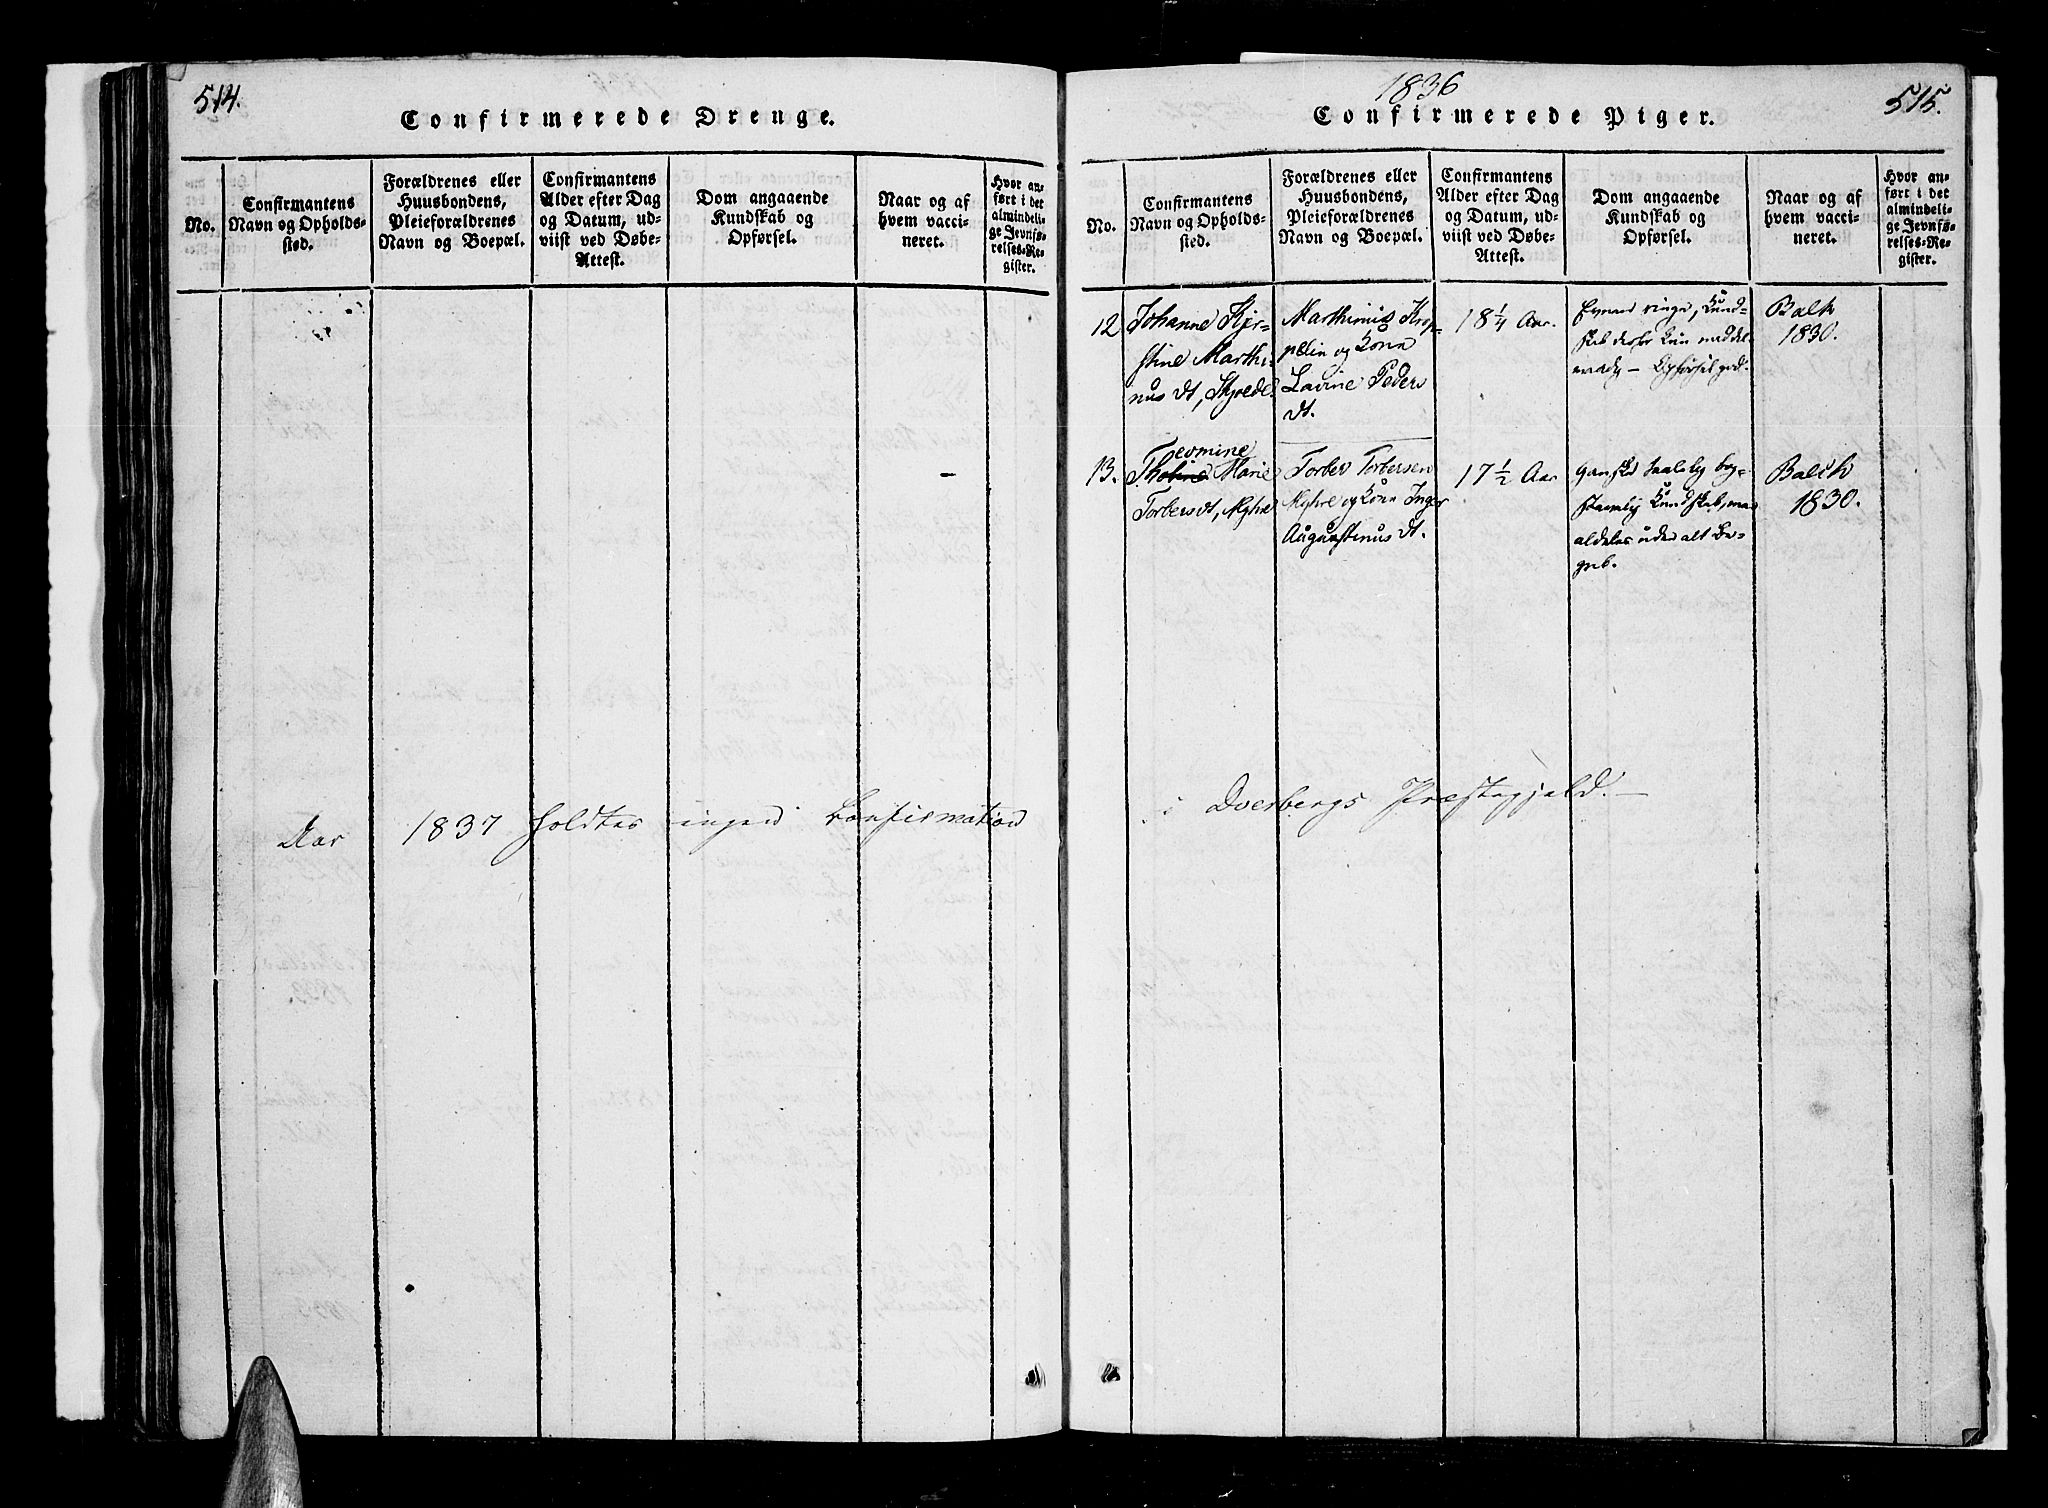 514.
Confirmerede Drenge.
No.
Confirmantens
Navn og Opholds-
sted.
Forældrenes eller
Huusbondens,
Pleieforældrenes
Navn og Boepæl.
Confirmantens
Alder efter Dag
og Datum, ud-
viist ved Døbe-
Attest.
Dom angaaende
Kundskab og
Opførsel.
Naar og af
hvem vacci-
neret.
Hvor an-
ført i det
almindeli-
ge Jevnfø-
relses-Re-
gister.
Aar 1837 holdtes ingen Confirmation
1836
515.
Confirmerede Piger.
No.
Confirmantens
Navn og Opholds-
sted.
Forældrenes eller
Huusbondens,
Pleieforældrenes
Navn og Boepæl.
Confirmantens
Alder efter Dag
og Datum, ud-
viist ved Døbe-
Attest.
Dom angaaende
Kundskab og
Opførsel.
Naar og af
hvem vacci-
neret.
Hvor an-
ført i det
almindeli-
ge Jevnfø-
relses-Re-
gister.
12
Johanne Kjer-
stine Marthi-
nus dt,
Marthinus
og Kone
Lavine Peders
dt.
18 1/4 Aar.
Evner ringe, Kund-
skab derfor kun maadel-
Opførsel god.
Balch
1830.
13.
Marie
Torbers dt, Myhre
Torber Torbersen
Myhre og Kone Inger
Augustinus dt.
17 1/2 Aar
ganske taalelig bog-
stavelig Kundskab, men
aldeles uden alt Be-
greb.
Balch
1830.
i Dverbergs Præstegjeld.